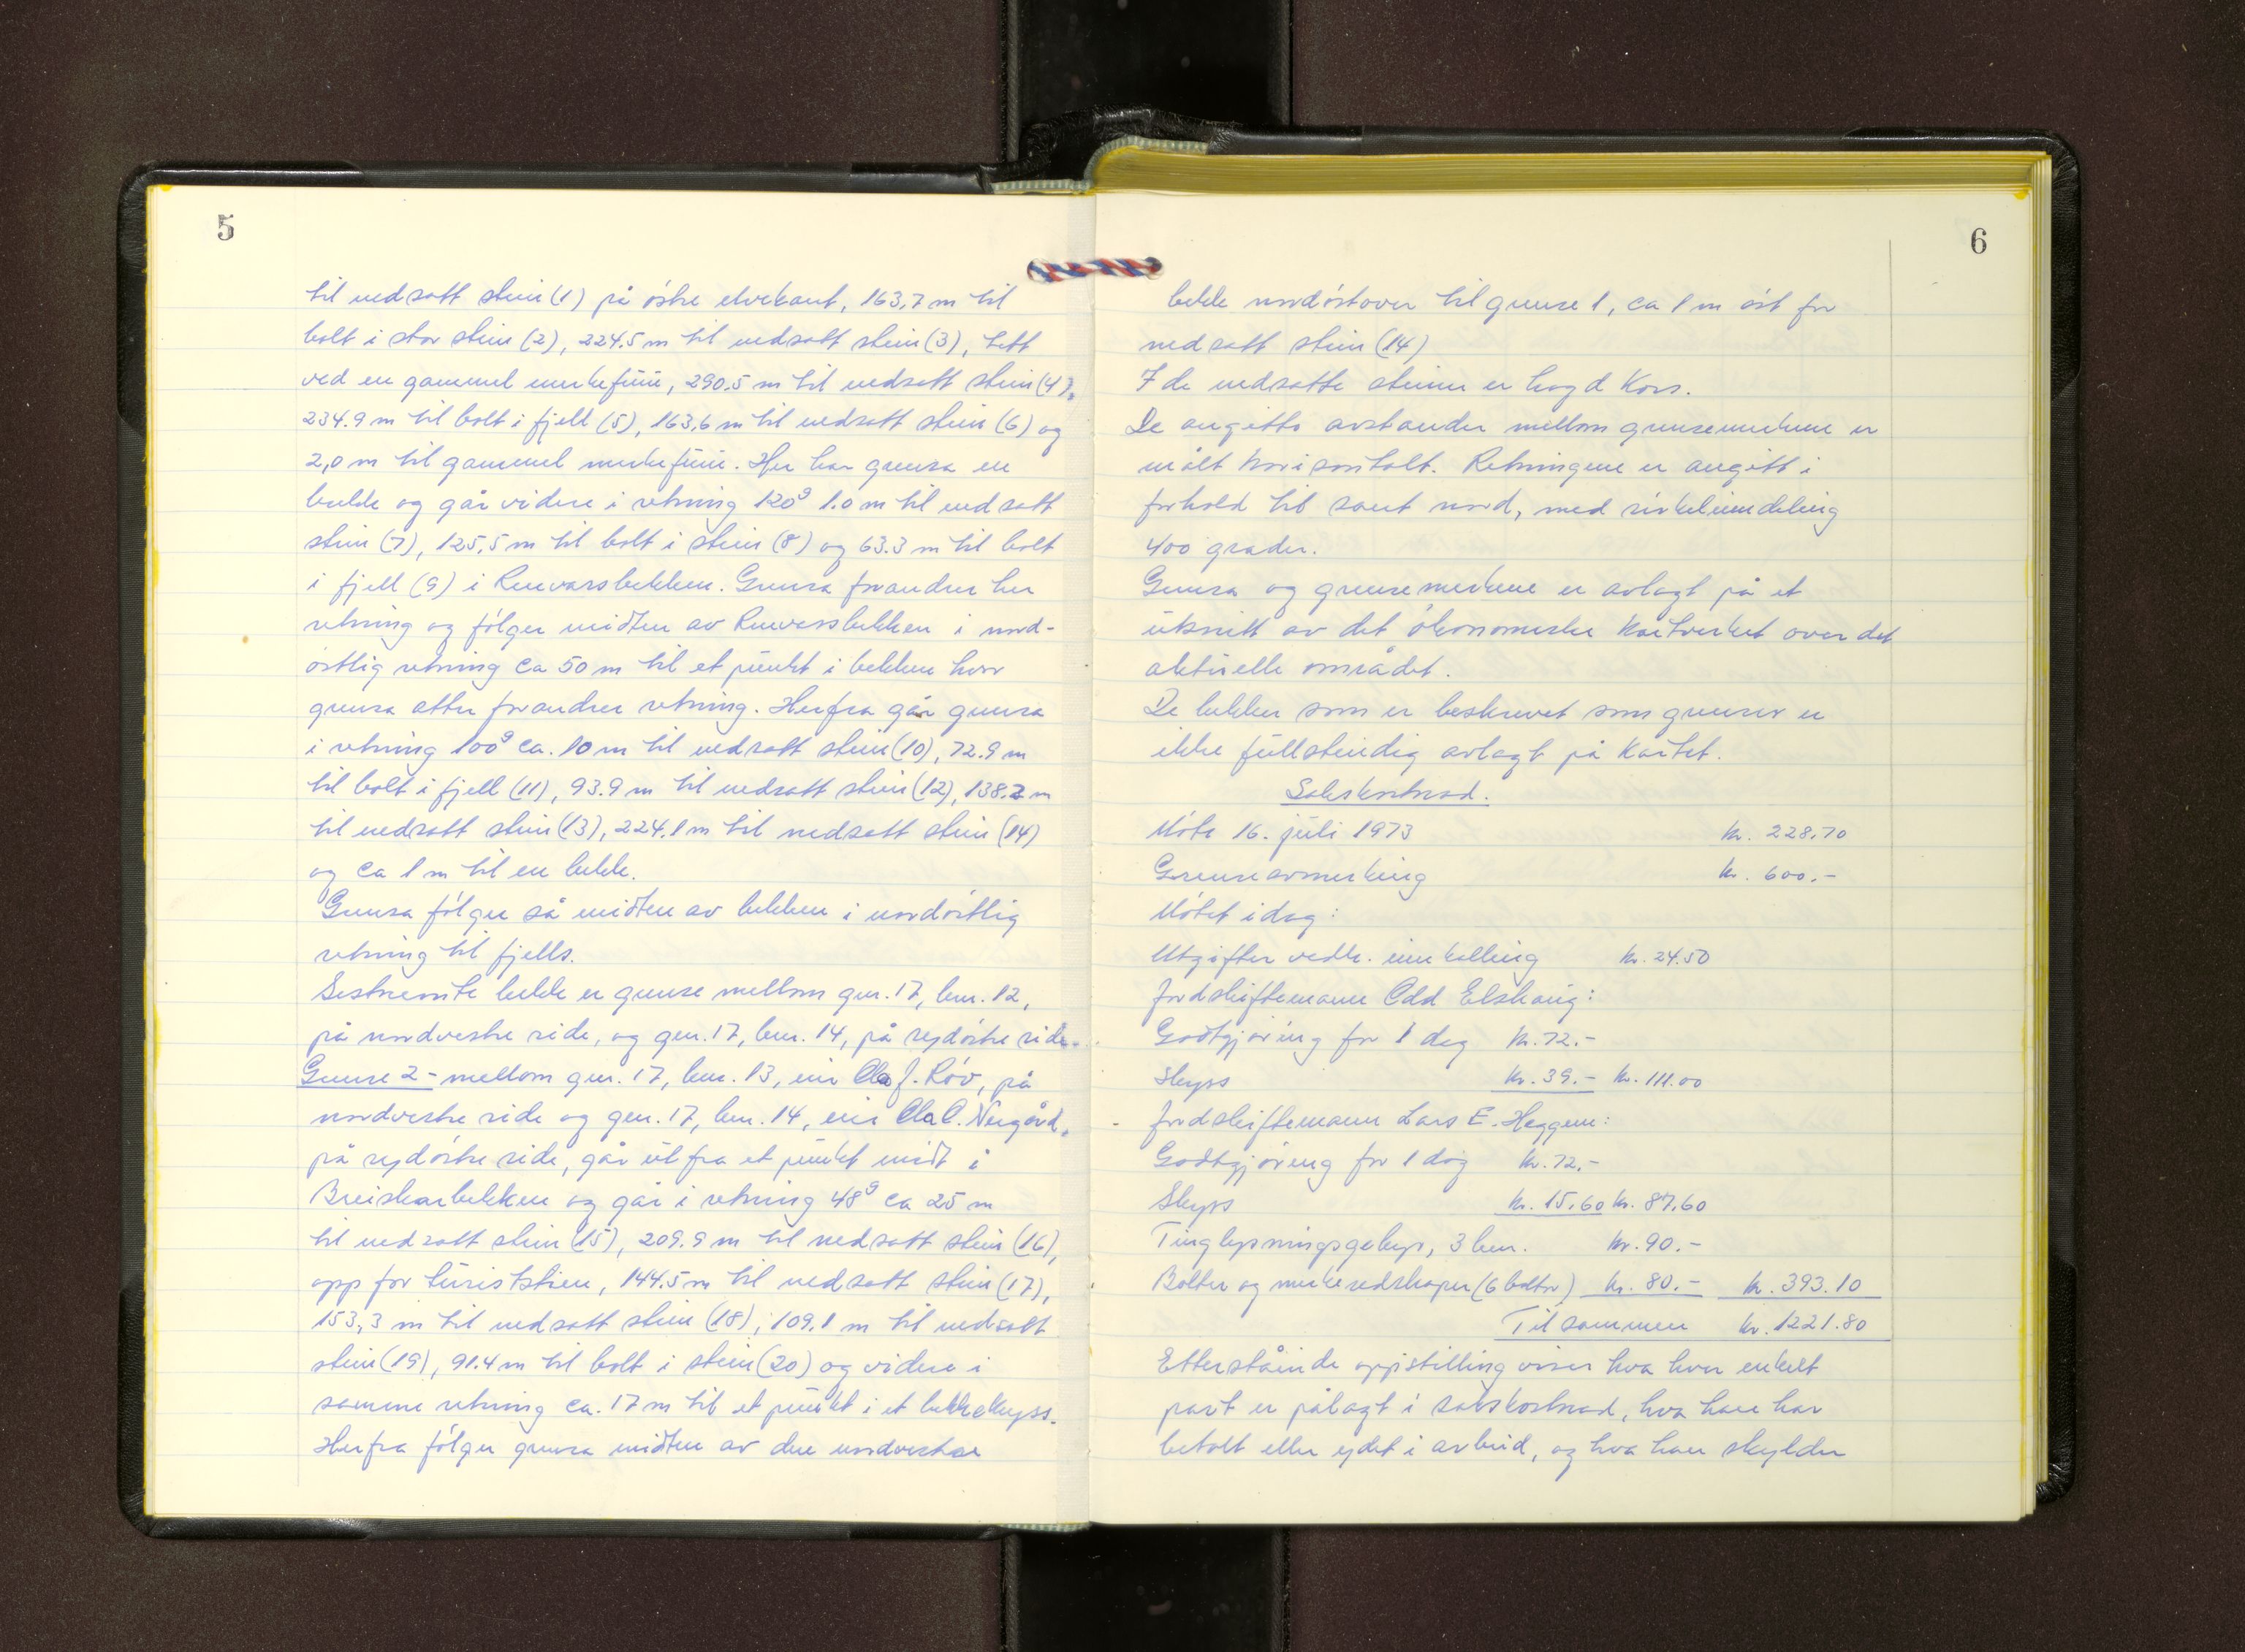 5
til nedsatt stein (1) på østre elvekant, 163,7 m til
bolt i stor stein (2), 224.5 m til nedsatt stein (3), tett
ved en gammel merkefuru, 290.5 m til nedsatt stein (4),
234.9 m til bolt i fjell (5), 163,6 m til nedsatt stein (6) og
2,0 m til gammel merkefuru. Her har grensa en
brekk og går videre i retning 120g 1.0 m til nedsatt
stein (7), 125,5 m til bolt i stein (8) og 63.3 m til bolt
i fjell (9) i bekken. Grensa forandrer her
retning og følger midten av bekken i nord-
østlig retning ca 50 m til et punkt i bekken hvor
grensa atter forandrer retning. Herfra går grensa
i retning 100g ca. 10 m til nedsatt stein (10), 72.9 m
til bolt i fjell (11), 93.9 m til nedsatt stein (12), 138.2 m
til nedsatt stein (13), 224.1 m til nedsatt stein (14)
og ca 1 m til en bekk.
Grensa følger så midten av bekken i nordøstlig
retning til fjells.
Sistnevnte bekk er grense mellom gnr. 17, bnr. 12,
på nordvestre side, og gnr. 17, bnr. 14, på sydøstre side.
Grense 2 - mellom gnr. 17, bnr. 13, eier Ola J. Røv, på
nordvestre side og gnr. 17, bnr. 14, eier Ola O. Nergård,
på sydøstre side, går ut fra et punkt midt i
Breiskarbekken og går i retning 48g ca 25 m
til nedsatt stein (15), 209.9 m til nedsatt stein (16),
opp for turiststien, 144.5 m til nedsatt stein (17),
153,3 m til nedsatt stein (18), 109.1 m til nedsatt
stein (19), 91.4 m til bolt i stein (20) og videre i
samme retning ca. 17 m til et punkt i et bekkekryss.
Herfra følger grensa midten av den nordvestre
6
bekk nordøstover til grense 1, ca 1 m øst for
nedsatt stein (14)
I de nedsatte steiner er hogd kors.
De angitte avstander mellom grensemerkene er
målt horisontalt. Retningene er angitt i
forhold til sant nord, med sirkelinndeling
400 grader.
Grensa og grensemerkene er avlagt på et
utsnitt av det økonomiske kartverket over det
aktuelle området.
De bekker som er beskrevet som grenser er
ikke fullstendig avlagt på kartet.
Sakskostnad.
Møte 16. juli 1973 kr. 228.70
Grenseavmerking kr. 600.-
Møtet idag:
Utgifter vedk. innkalling kr. 24.50
Jordskiftemann Odd Elshaug:
Godtgjøring for 1 dag kr. 72.-
Skyss kr. 39.- kr. 111.00
Jordskiftemann Lars E. Heggem:
Godtgjøring for 1 dag kr. 72.-
Skyss kr. 15.60 kr. 87.60
Tinglysningsgebyr, 3 bnr. kr. 90.-
Bolter og merkeredskaper (6 bolter) kr. 80.- kr. 393.10
Tilsammen kr. 1221.80
Etterstående oppstilling viser hva hver enkelt
part er pålagt i sakskostnad, hva han har
betalt eller ydet i arbeid, og hva han skylder